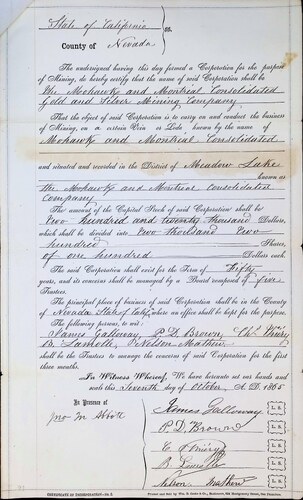 State of California
ss.
County of Nevada
The undersigned having this day formed a Corporation for the purpose
of Mining, do hereby certify that the name of said Corporation shall be
The Mohawk and Montreal Consolidated
Gold and Silver Mining Company
That the object of said Corporation is to carry on and conduct the business
of Mining, on a certain Vein or Lode, known by the name of
Mohawk and Montreal Consolidated
and situated and recorded in the District of Meadow Lake
known as
The Mohawk and Montreal Consolidated
Company
The amount of the Capital Stock of said Corporation shall be
Two Hundred and twenty Thousand Dollars,
which shall be divided into Two Thousand Two
hundred Shares,
of one hundred Dollars each.
The said Corporation shall exist for the Term of Fifty
years, and its concerns shall be managed by a Board composed of five
Trustees.
The principal place of business of said Corporation shall be in the County
of Nevada State of Calif, where an office shall be kept for the purpose.
The following persons, to wit:
James Galloway, P. D. Brown,
B. Nelson Mathew
shall be the Trustees to manage the concerns of said Corporation for the first
three months.
In Witness Whereof, We have hereunto set our hands and
seals this Seventh day of October, A. D. 1865
In Presence of
Jno M Abbott
James Galloway L. S.
P. D. Brown L. S.
L. S.
L. S.
Nelson Mathew L. S.
CERTIFICATE OF INCORPORATION